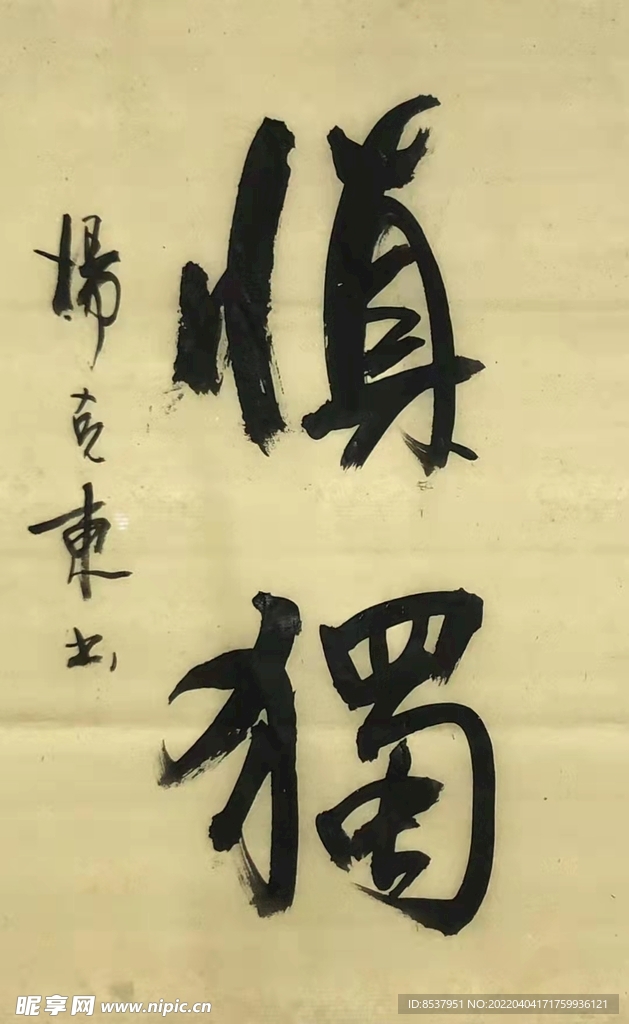 慎獨
楊克東书
昵享网 www.nipic.cn
ID:8537951 NO:20220404171759936121